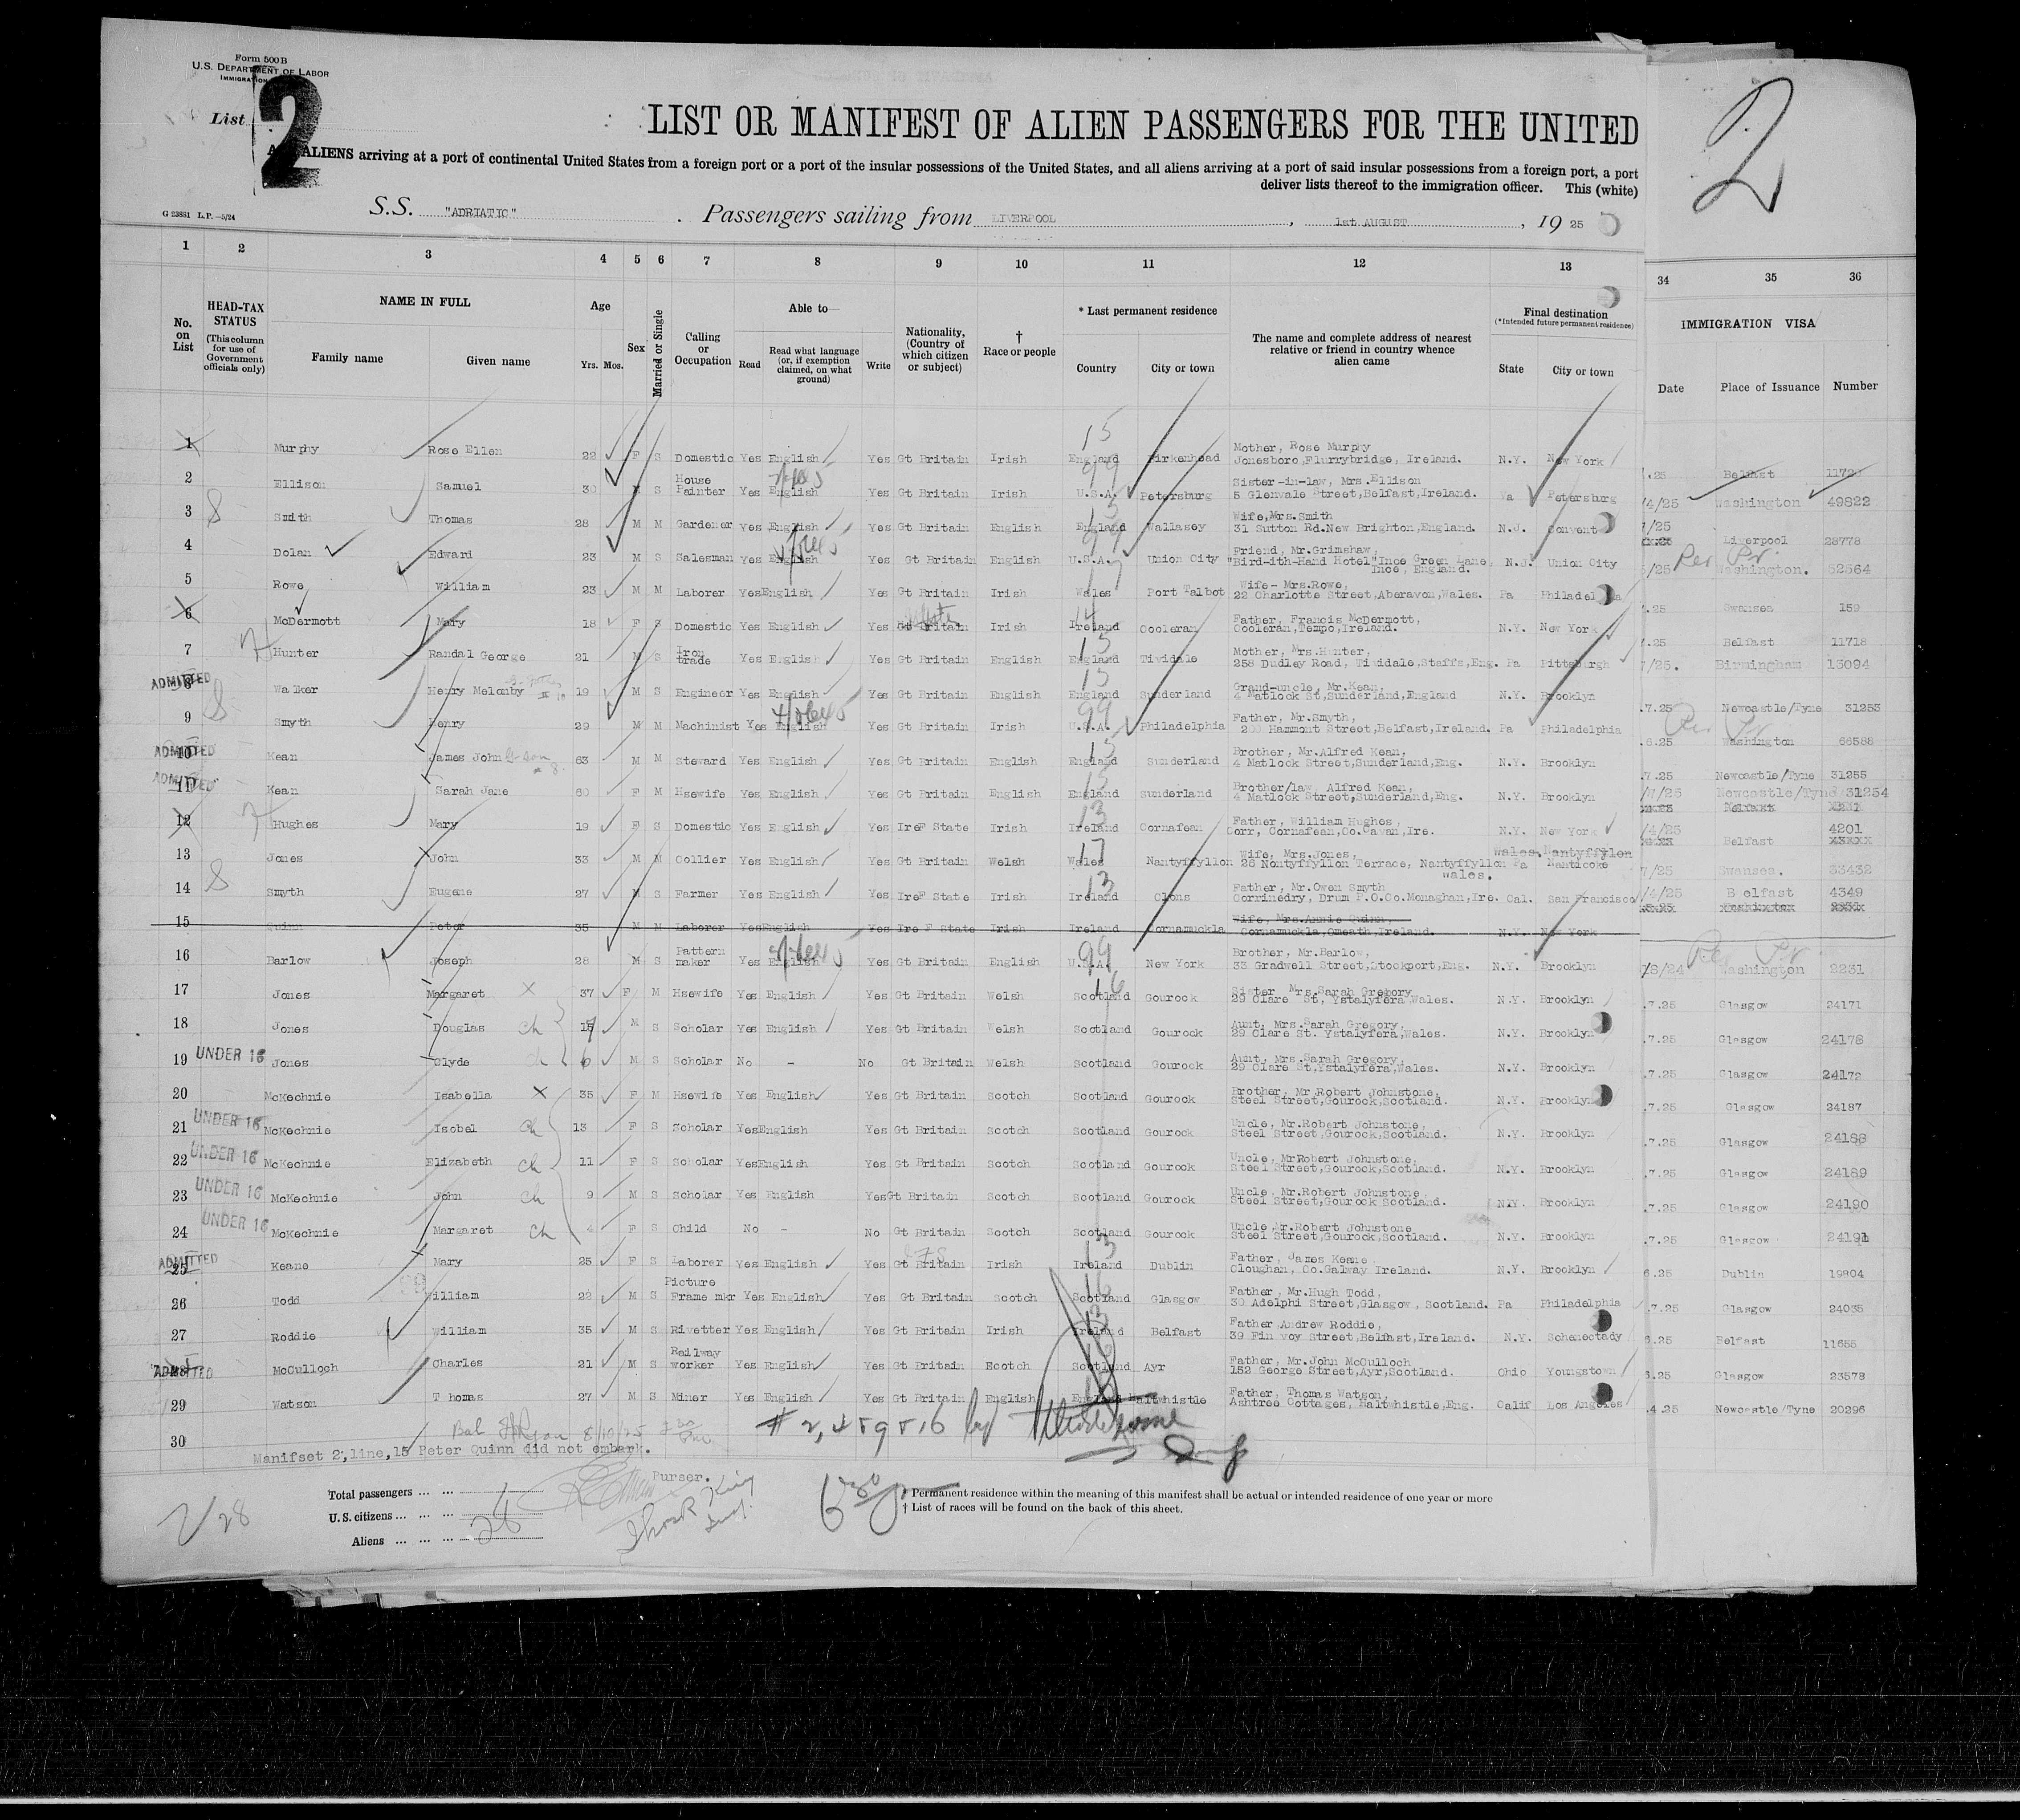 Form 500B
U.S. DEPARTMENT OF LABOR
IMMIGRATION
List 2
LIST OR MANIFEST OF ALIEN PASSENGERS FOR THE UNITED
2
ALL ALIENS arriving at a port of continental United States from a foreign port or a port of the insular possessions of the United States, and all aliens arriving at a port of said insular possessions from a foreign port, a port
deliver lists thereof to the immigration officer. This (white)
G 23881 L.P.—5/24
S.S. "ADRIATIC" . Passengers sailing from LIVERPOOL , 1st AUGUST , 19 25
1 2 3 4 5 6 7 8 9 10 11 12 13 34 35 36
No. on List
HEAD-TAX STATUS (This column for use of Government officials only)
NAME IN FULL Family name Given name
Age Yrs. Mos.
Sex
Married or Single
Calling or Occupation
Able to— Read Read what language (or, if exemption claimed, on what ground) Write
Nationality, (Country of which citizen or subject)
† Race or people
* Last permanent residence Country City or town
The name and complete address of nearest relative or friend in country whence alien came
Final destination (*Intended future permanent residence) State City or town
IMMIGRATION VISA Date Place of Issuance Number
1 Murphy Rose Ellen 22 F S Domestic Yes English Yes Gt Britain Irish 15 England Birkenhead Mother, Rose Murphy Jonesboro,Flurrybridge, Ireland. N.Y. New York .25 Belfast
2 Ellison Samuel 30 M S House Painter Yes English Yes Gt Britain Irish 99 U.S.A. Petersburg Sister-in-law, Mrs.Ellison 5 Glenvale Street,Belfast,Ireland. Va Petersburg /4/25 Washington 49822
3 8 Smith Thomas 28 M M Gardener Yes English Yes Gt Britain English 15 England Wallasey Wife,Mrs.Smith 31 Sutton Rd.New Brighton,England. N.J. Convent /25 Liverpool 28778
4 Dolan Edward 23 M S Salesman Yes English Yes Gt Britain English 99 U.S.A. Union City Friend, Mr.Grimshaw, "Bird-ith-Hand Hotel"Ince Green Lane, Ince, England. N.J. Union City /25 Washington. 52564
5 Rowe William 23 M M Laborer Yes English Yes Gt Britain Irish 17 Wales Port Talbot Wife- Mrs.Rowe, 22 Charlotte Street,Aberavon,Wales. Pa Philadelphia .25 Swansea 159
6 McDermott Mary 18 F S Domestic Yes English Yes Gt Britain Irish 14 Ireland Cooleran Father, Francis McDermott, Cooleran,Tempo,Ireland. N.Y. New York .25 Belfast 11718
7 7 Hunter Randal George 21 M S Iron trade Yes English Yes Gt Britain English 15 England Tividale Mother, Mrs.Hunter, 258 Dudley Road, Tividale,Staffs,Eng. Pa Pittsburgh /25. Birmingham 13094
ADMITTED 8 8 Walker Henry Melonby 19 M S Engineer Yes English Yes Gt Britain English 15 England Sunderland Grand-uncle, Mr.Kean, 4 Matlock St,Sunderland,England N.Y. Brooklyn .7.25 Newcastle/Tyne 31253
9 Smyth Henry 29 M M Machinist Yes English Yes Gt Britain Irish 99 U.S.A. Philadelphia Father, Mr.Smyth, Hammont Street,Belfast,Ireland. Pa Philadelphia .6.25 Washington 66588
ADMITTED 10 Kean James John 63 M M Steward Yes English Yes Gt Britain English 15 England Sunderland Brother, Mr.Alfred Kean, 4 Matlock Street,Sunderland,Eng. N.Y. Brooklyn .7.25 Newcastle/Tyne 31255
ADMITTED 11 Kean Sarah Jane 60 F M Hsewife Yes English Yes Gt Britain English 15 England Sunderland Brother/law, Alfred Kean, 4 Matlock Street,Sunderland,Eng. N.Y. Brooklyn /25 Newcastle/Tyne 31254
12 7 Hughes Mary 19 F S Domestic Yes English Yes IreF State Irish 13 Ireland Cornafean Father, William Hughes, Corr, Cornafean,Co.Cavan,Ire. N.Y. New York /4/25 Belfast 4201
13 Jones John 33 M M Collier Yes English Yes Gt Britain Welsh 17 Wales Nantyffyllon Wife, Mrs.Jones, 28 Nontyffyllon Terrace, Nantyffyllon Wales. Wales.Nantyffyllon Pa Nanticoke /25 Swansea. 33432
14 8 Smyth Eugene 27 M S Farmer Yes English Yes IreF State Irish 13 Ireland Clons Father, Mr.Owen Smyth Corrinedry, Drum P.O.Co.Monaghan,Ire. Cal. San Francisco /4/25 Belfast 4349
15 Quinn Peter 35 M M Laborer Yes English Yes Ire F State Irish Ireland Cornamuckla Wife, Mrs.Annie Quinn, Cornamuckla,Omeath,Ireland. N.Y. New York
16 Barlow Joseph 28 M S Pattern maker Yes English Yes Gt Britain English 99 U.S.A. New York Brother, Mr.Barlow, 33 Gradwell Street,Stockport,Eng. N.Y. Brooklyn /8/24 Washington 2231
17 Jones Margaret X 37 F M Hsewife Yes English Yes Gt Britain Welsh 16 Scotland Gourock Sister Mrs.Sarah Gregory 29 Clare St, Ystalyfera Wales. N.Y. Brooklyn .7.25 Glasgow 24171
18 Jones Douglas ch 17 M S Scholar Yes English Yes Gt Britain Welsh Scotland Gourock Aunt, Mrs.Sarah Gregory, 29 Clare St. Ystalyfera,Wales. N.Y. Brooklyn .7.25 Glasgow 24178
19 UNDER 16 Jones Clyde ch 6 M S Scholar No - No Gt Britain Welsh Scotland Gourock Aunt, Mrs.Sarah Gregory, 29 Clare St,Ystalyfera,Wales. N.Y. Brooklyn .7.25 Glasgow 24172
20 McKechnie Isabella X 35 F M Hsewife Yes English Yes Gt Britain Scotch Scotland Gourock Brother, Mr Robert Johnstone, Steel Street,Gourock,Scotland. N.Y. Brooklyn .7.25 Glasgow 24187
21 UNDER 16 McKechnie Isobel ch 13 F S Scholar Yes English Yes Gt Britain Scotch Scotland Gourock Uncle, Mr.Robert Johnstone, Steel Street,Gourock,Scotland. N.Y. Brooklyn .7.25 Glasgow 24188
22 UNDER 16 McKechnie Elizabeth ch 11 F S Scholar Yes English Yes Gt Britain Scotch Scotland Gourock Uncle, MrRobert Johnstone, Steel Street,Gourock,Scotland. N.Y. Brooklyn .7.25 Glasgow 24189
23 UNDER 16 McKechnie John ch 9 M S Scholar Yes English Yes Gt Britain Scotch Scotland Gourock Uncle, Mr.Robert Johnstone, Steel Street,Gourock Scotland. N.Y. Brooklyn .7.25 Glasgow 24190
24 UNDER 16 McKechnie Margaret ch 4 F S Child No - No Gt Britain Scotch Scotland Gourock Uncle Mr.Robert Johnstone Steel Street,Gourock,Scotland. N.Y. Brooklyn .7.25 Glasgow 24191
ADMITTED 25 Keane Mary 25 F S Laborer Yes English Yes Gt Britain Irish 13 Ireland Dublin Father, James Keane Cloughan, Co.Galway Ireland. N.Y. Brooklyn 6.25 Dublin 19804
26 Todd William 22 M S Picture Frame mkr Yes English Yes Gt Britain Scotch 16 Scotland Glasgow Father, Mr.Hugh Todd, 30 Adelphi Street,Glasgow, Scotland. Pa Philadelphia .7.25 Glasgow 24035
27 Roddie William 35 M S Rivetter Yes English Yes Gt Britain Irish Ireland Belfast Father Andrew Roddie, 39 Finvoy Street,Belfast,Ireland. N.Y. Schenectady 6.25 Belfast 11655
ADMITTED 28 McCulloch Charles 21 M S Railway worker Yes English Yes Gt Britain Scotch Scotland Ayr Father, Mr.John McCulloch 152 George Street,Ayr,Scotland. Ohio Youngstown .25 Glasgow 23578
29 Watson Thomas 27 M S Miner Yes English Yes Gt Britain English England Haltwhistle Father, Thomas Watson, Ashtree Cottages, Haltwhistle,Eng. Calif Los Angeles .4.25 Newcastle/Tyne 20296
30
8/10/25 # 2, 4 & 9 & 16 by
Manifset 2,line,15 Peter Quinn did not embark.
Purser.
Total passengers ... ...
U.S. citizens ... ... ...
Aliens ... ... ... 28
28
* Permanent residence within the meaning of this manifest shall be actual or intended residence of one year or more
† List of races will be found on the back of this sheet.